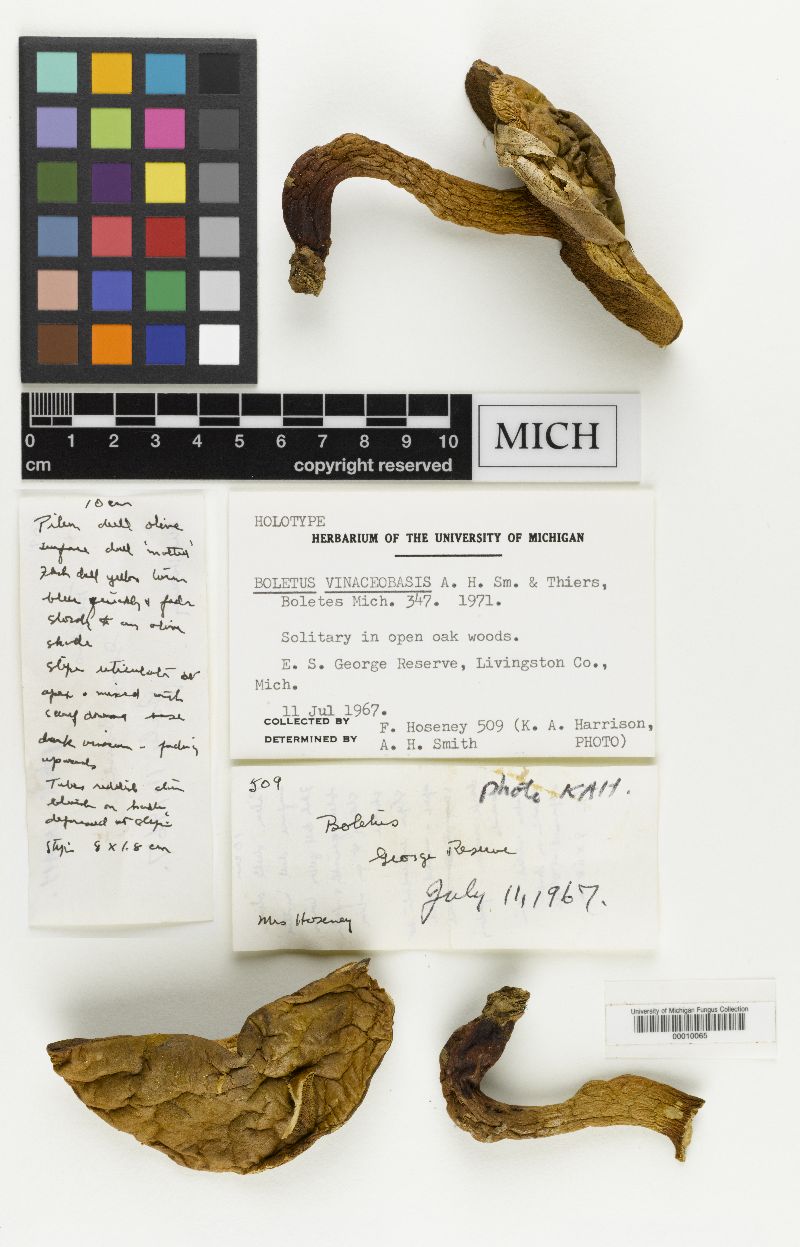 0 1 2 3 4 5 6 7 8 9 10
cm copyright reserved
MICH
10 cm
Pileus dull olive
surface dull 'matted'
flesh dull yellow turns
blue quickly & fades
slowly to an olive
shade
stipe reticulate at
apex & mixed with
scurf downward base
dark vinaceous - fading
upwards
Tubes reddish
bluish on
depressed at stipe
Stipe 8 x 1.8 cm
HOLOTYPE
HERBARIUM OF THE UNIVERSITY OF MICHIGAN
BOLETUS VINACEOBASIS A. H. Sm. & Thiers,
Boletes Mich. 347. 1971.
Solitary in open oak woods.
E. S. George Reserve, Livingston Co.,
Mich.
11 Jul 1967.
COLLECTED BY F. Hoseney 509 (K. A. Harrison,
DETERMINED BY A. H. Smith PHOTO)
509
photo KAH.
Boletus
George Reserve
July 11, 1967.
Mrs Hoseney
University of Michigan Fungus Collection
00010065